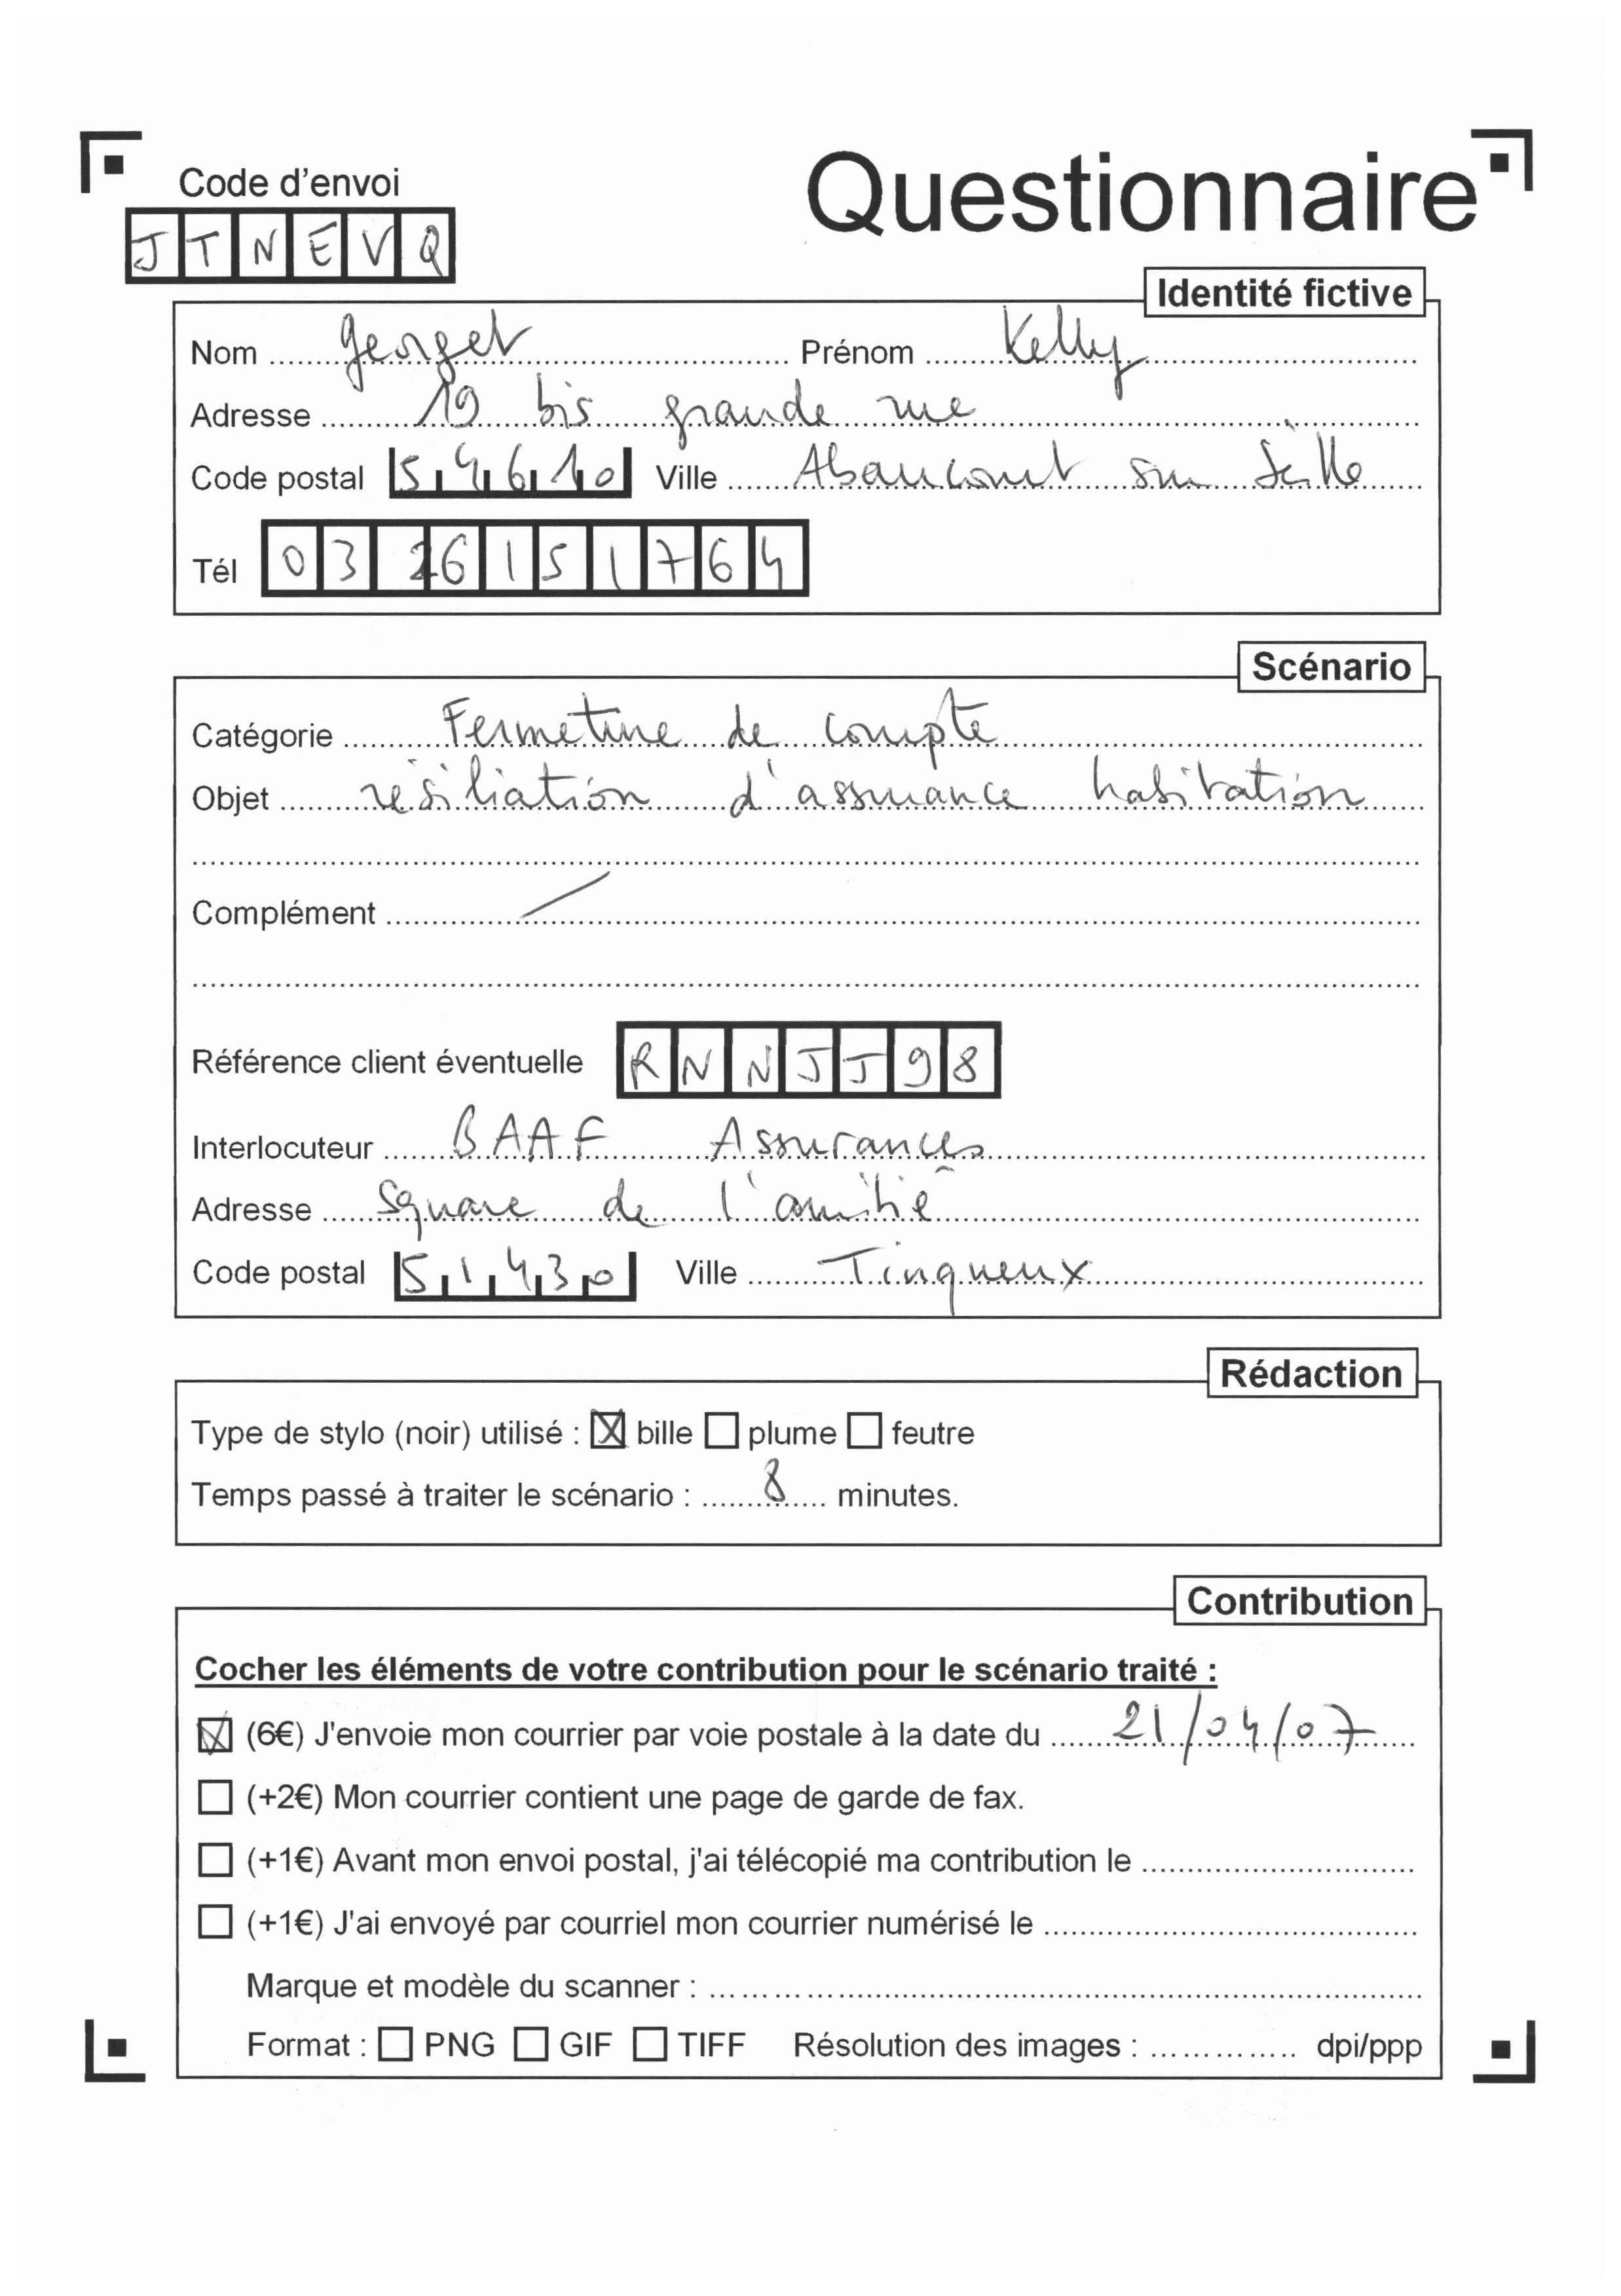 Code d'envoi
Questionnaire
JTNEVQ
Identité fictive
Nom georget Prénom Kelly
Adresse 19 bis grande rue
Code postal 54610 Ville Abaucourt sur Seille
Tél 0326151764
Scénario
Catégorie Fermeture de compte
Objet résiliation d'assurance habitation
Complément /
Référence client éventuelle RNNJJ98
Interlocuteur BAAF Assurances
Adresse Square de l'amitié
Code postal 51430 Ville Tinqueux
Rédaction
Type de stylo (noir) utilisé : ☒ bille ☐ plume ☐ feutre
Temps passé à traiter le scénario : 8 minutes.
Contribution
Cocher les éléments de votre contribution pour le scénario traité :
☒ (6€) J'envoie mon courrier par voie postale à la date du 21/04/07
☐ (+2€) Mon courrier contient une page de garde de fax.
☐ (+1€) Avant mon envoi postal, j'ai télécopié ma contribution le
☐ (+1€) J'ai envoyé par courriel mon courrier numérisé le
Marque et modèle du scanner :
Format : ☐ PNG ☐ GIF ☐ TIFF Résolution des images : dpi/ppp